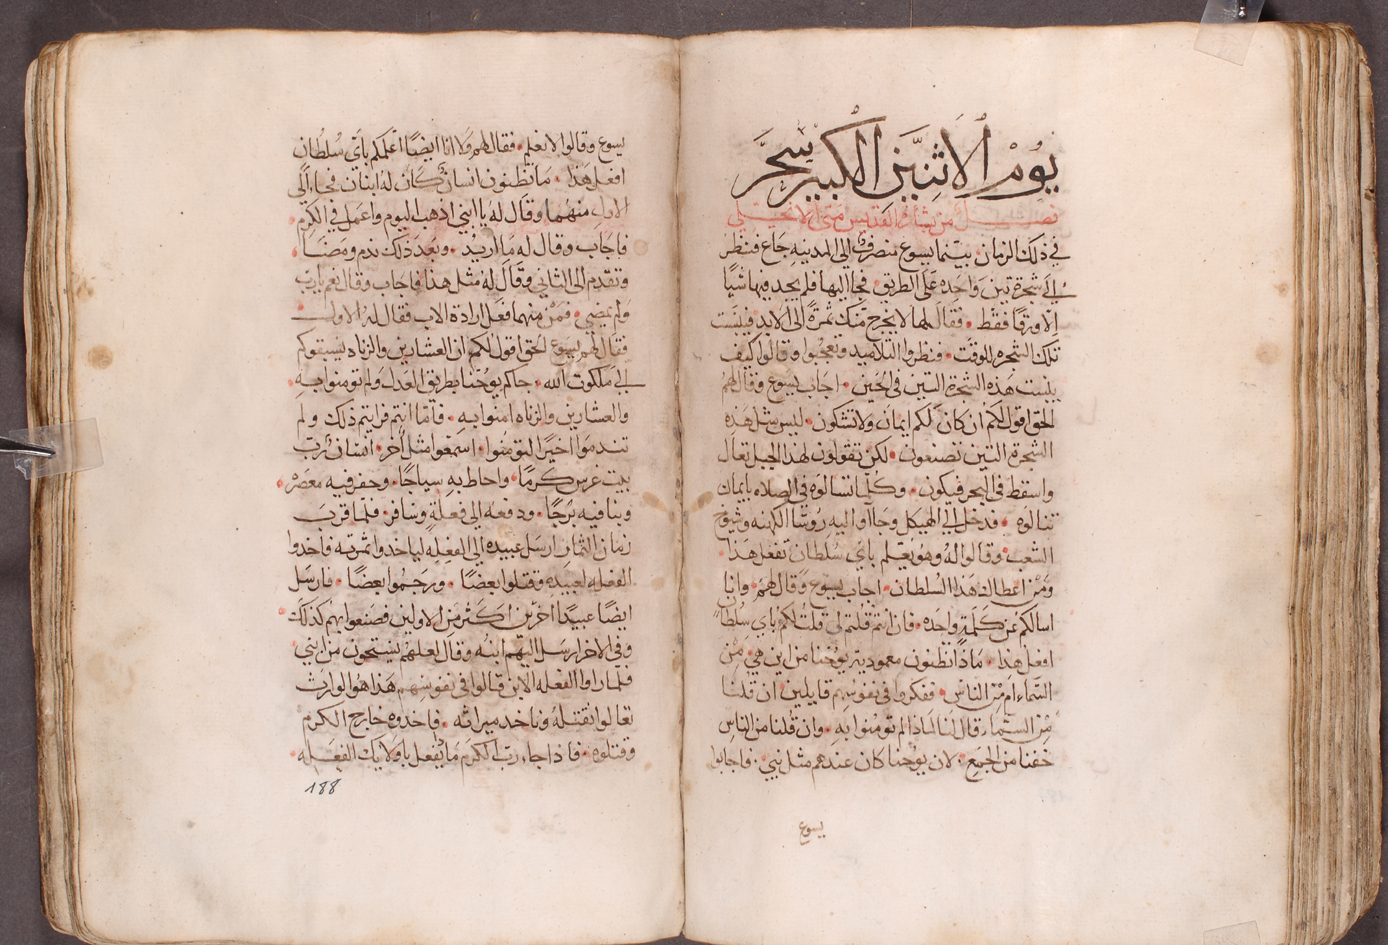 يوم الاثنين الكبير سحر
فصل من بشارة القديس متى الانجيلي
في ذلك الزمان بينما يسوع منصرف الى المدينه جاع فنظر
الى شجرة تين واحده على الطريق فجا اليها فلم يجد فيها شيًا
الا ورقًا فقط فقال لها لا يخرج منك ثمرة الى الابد فيبست
تلك الشجره للوقت فنظروا التلاميد وتعجبوا وقالوا كيف
يبست هذه الشجرة التين في الحين اجاب يسوع وقال لهم
الحق اقول لكم ان كان لكم ايمان ولا تشكون ليس مثل هذه
الشجرة التين تصنعون لكن تقولون لهذا الجبل تعال
واسقط في البحر فيكون وكلما تسالوه في الصلاه بايمان
تنالوه فدخل الى الهيكل وجآاوا اليه روسًا الكهنه وشيوخ
الشعب وقالوا له وهو يعلم باي سلطان تفعل هذا
ومن اعطاك هذا السلطان اجاب يسوع وقال لهم وانا
اسالكم عن كلمة واحده فان انتم قلتم لي قلت لكم باي سلطان
افعل هذا ماذا تظنون معمودية يوحنا من اين هي من
السماء ام من الناس ففكروا في نفوسهم قايلين ان قلنا
من السماء قال لنا لماذا لم تومنوا به وان قلنا من الناس
خفنا من الجمع لان يوحنا كان عندهم مثل نبي فاجابوا
يسوع
يسوع وقالوا لا نعلم فقال لهم ولا انا ايضًا اعلمكم باي سلطان
افعل هذا ما تظنون انسان كان له ابنان فجاء الى
الاول منهما وقال له يا ابني اذهب اليوم واعمل في الكرم
فاجاب وقال له ما اريد وبعد ذلك ندم ومضا
وتقدم الى الثاني وقال له مثل هذا فاجاب وقال نعم يارب
ولم يمضي فمن منهما فعل ارادة الاب فقال له الاول
فقال لهم يسوع الحق اقول لكم ان العشارين والزناه يسبقوكم
الى ملكوت الله جاكم يوحنا بطريق العدل ولم تومنوا به
والعشارين والزناه امنوا به فاما انتم فرايتم ذلك ولم
تندموا اخيرًا لتومنوا اسمعوا مثل اخر انسان رب
بيت غرس كرمًا واحاط به سياجًا وحفر فيه معصره
وبنا فيه برجًا ودفعه الى فعلة وسافر فلما قرب
زمان الثمار ارسل عبيده الى الفعله لياخدوا ثمرته فاخدوا
الفعله لعبيده وقتلوا بعضًا ورجموا بعضًا فارسل
ايضًا عبيدًا اخرين اكثر من الاولين فصنعوا بهم كذلك
وفي الاخر ارسل اليهم ابنه وقال لعلهم يستحون من ابني
فلما راوا الفعله الابن قالوا في نفوسهم هذا هو الوارث
تعالوا نقتله وناخد ميراثه فاخدوه خارج الكرم
وقتلوه فاذا جاء رب الكرم ما يفعل باولايك الفعله
188